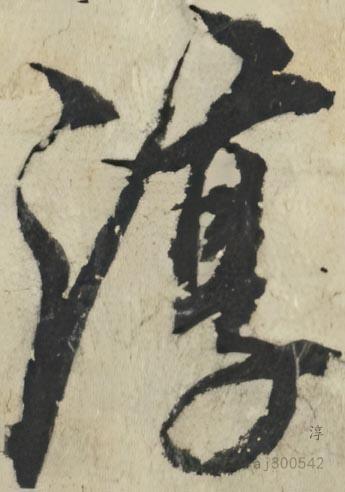 淳
淳
aj300542